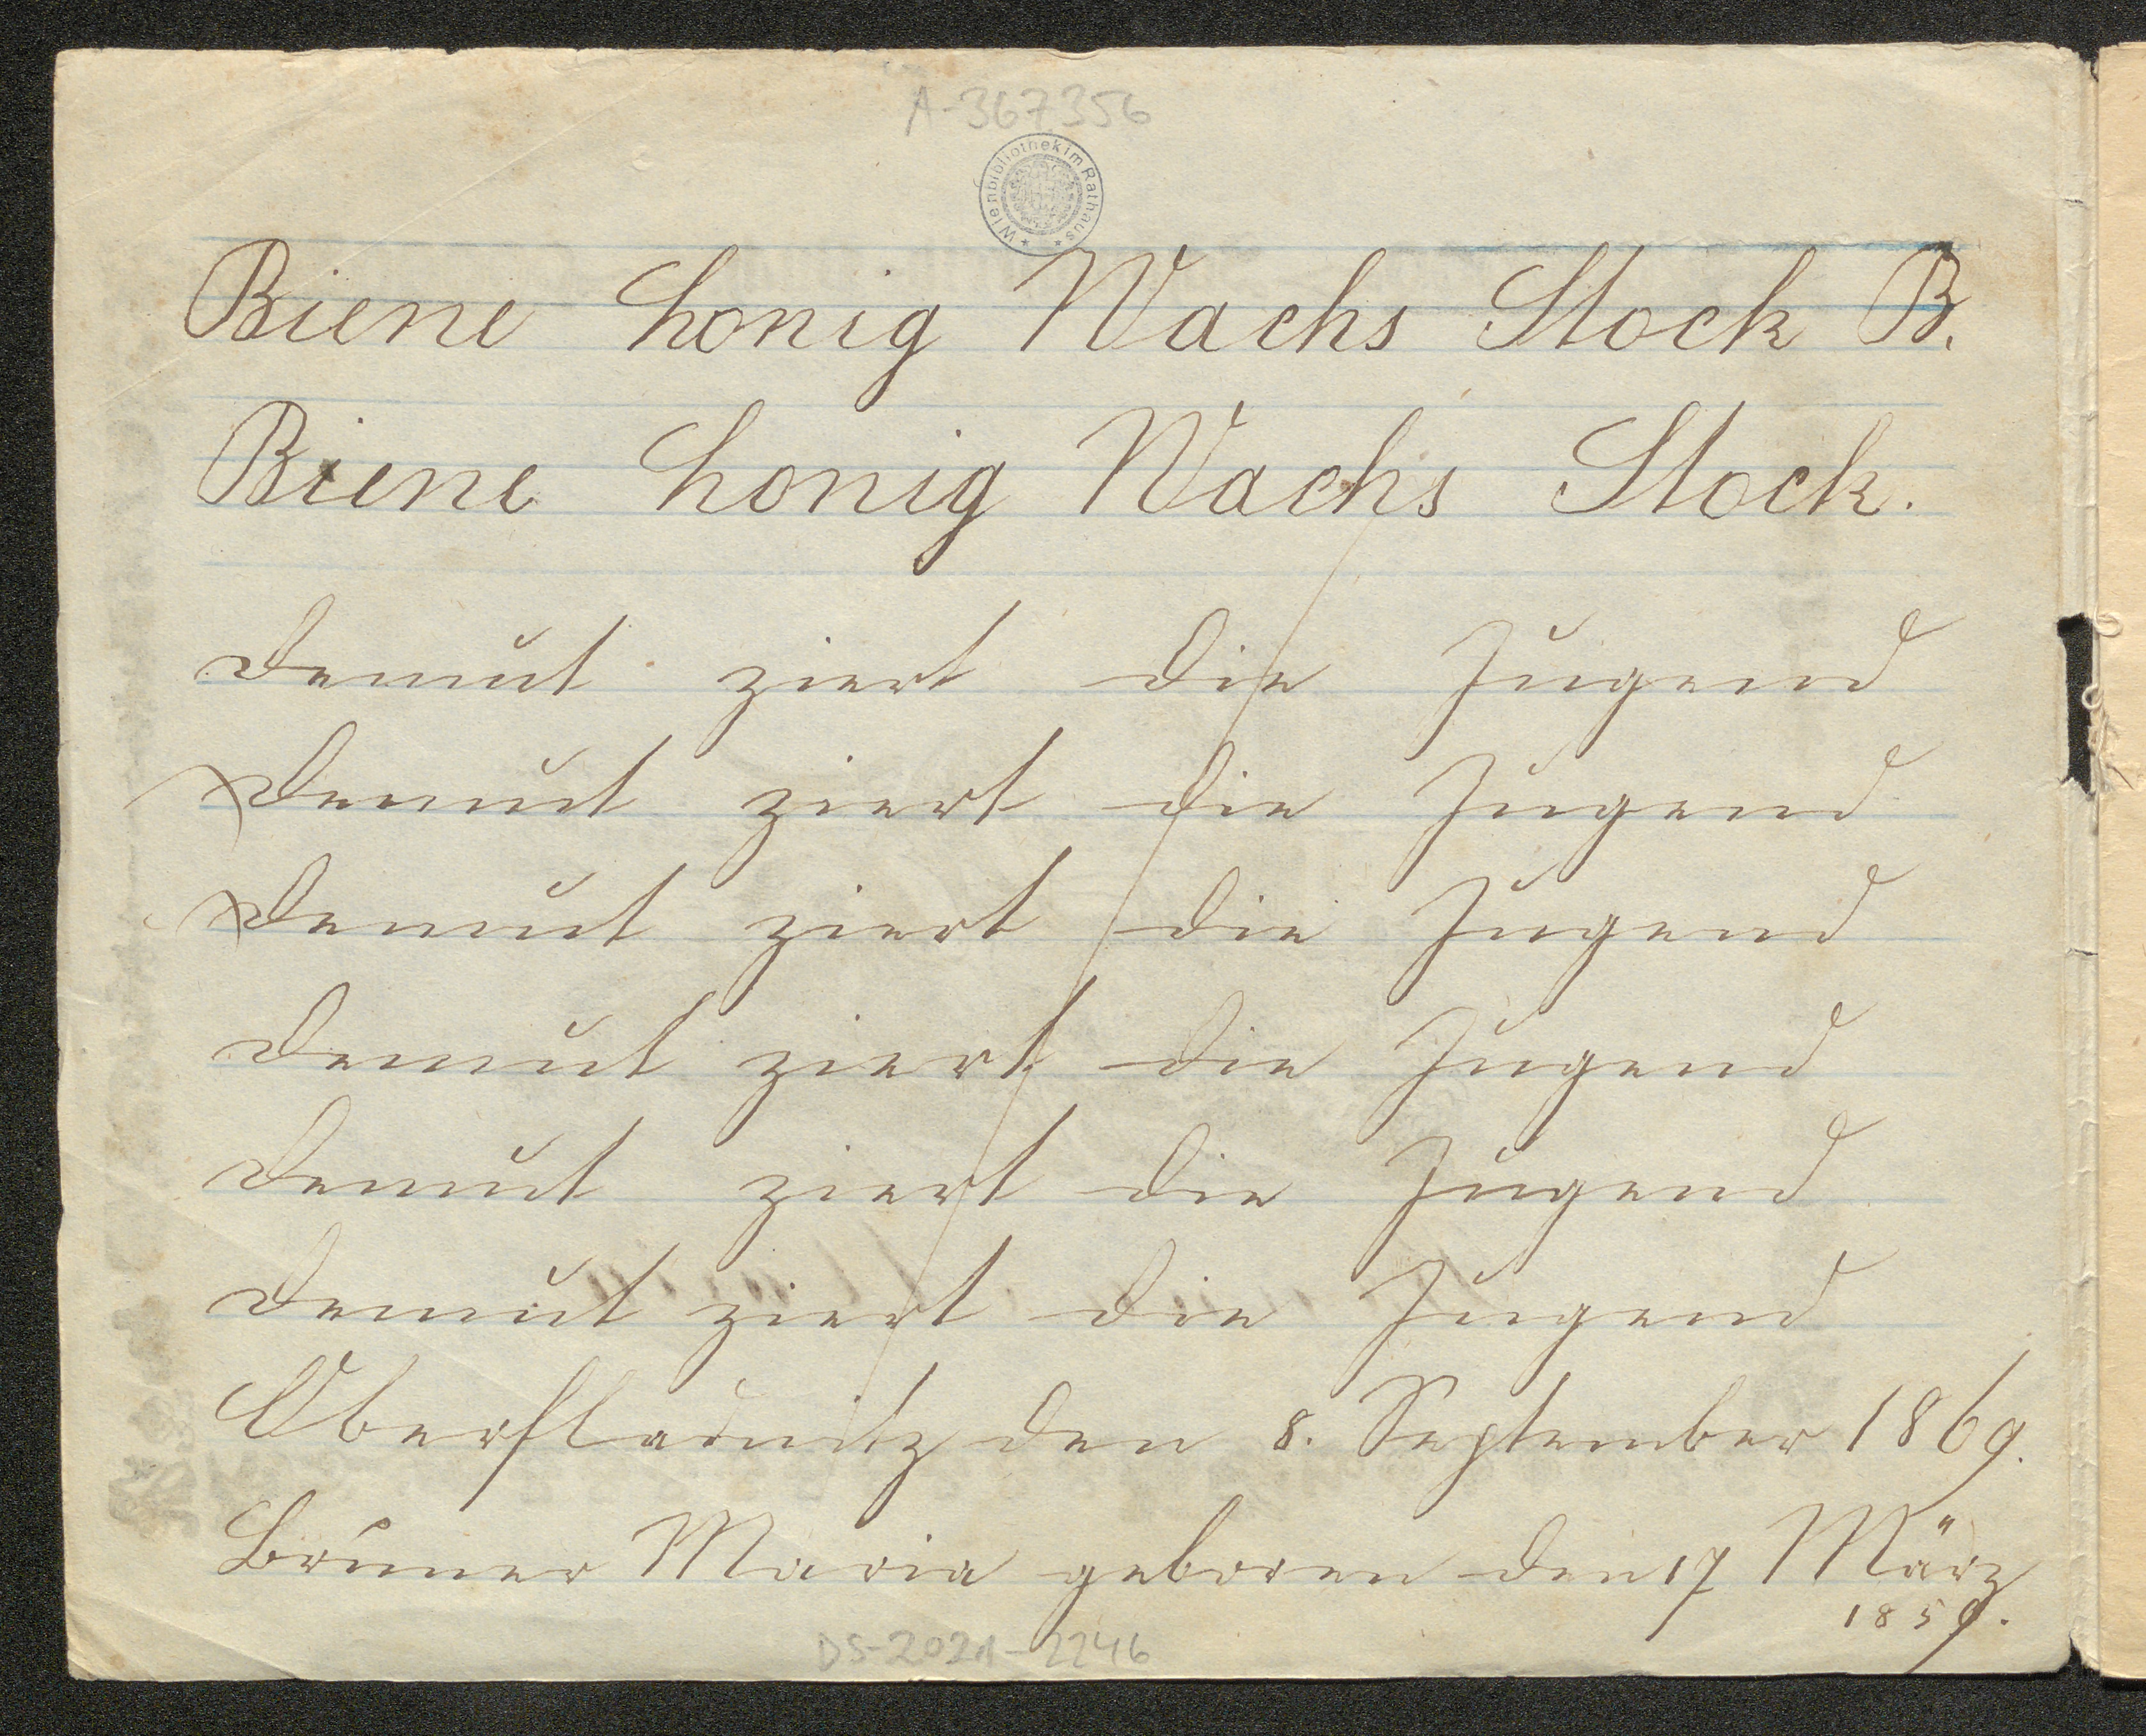 A-367356
Wienbibliothek im Rathaus
Biene Honig Wachs Stock B.
Biene Honig Wachs Stock.
Demut ziert die Jugend
Demut ziert die Jugend
Demut ziert die Jugend
Demut ziert die Jugend
Demut ziert die Jugend
Demut ziert die Jugend
Oberfladnitz den 8. September 1869.
Bruner Maria geboren den 17 März
1859.
DS-2021-2246